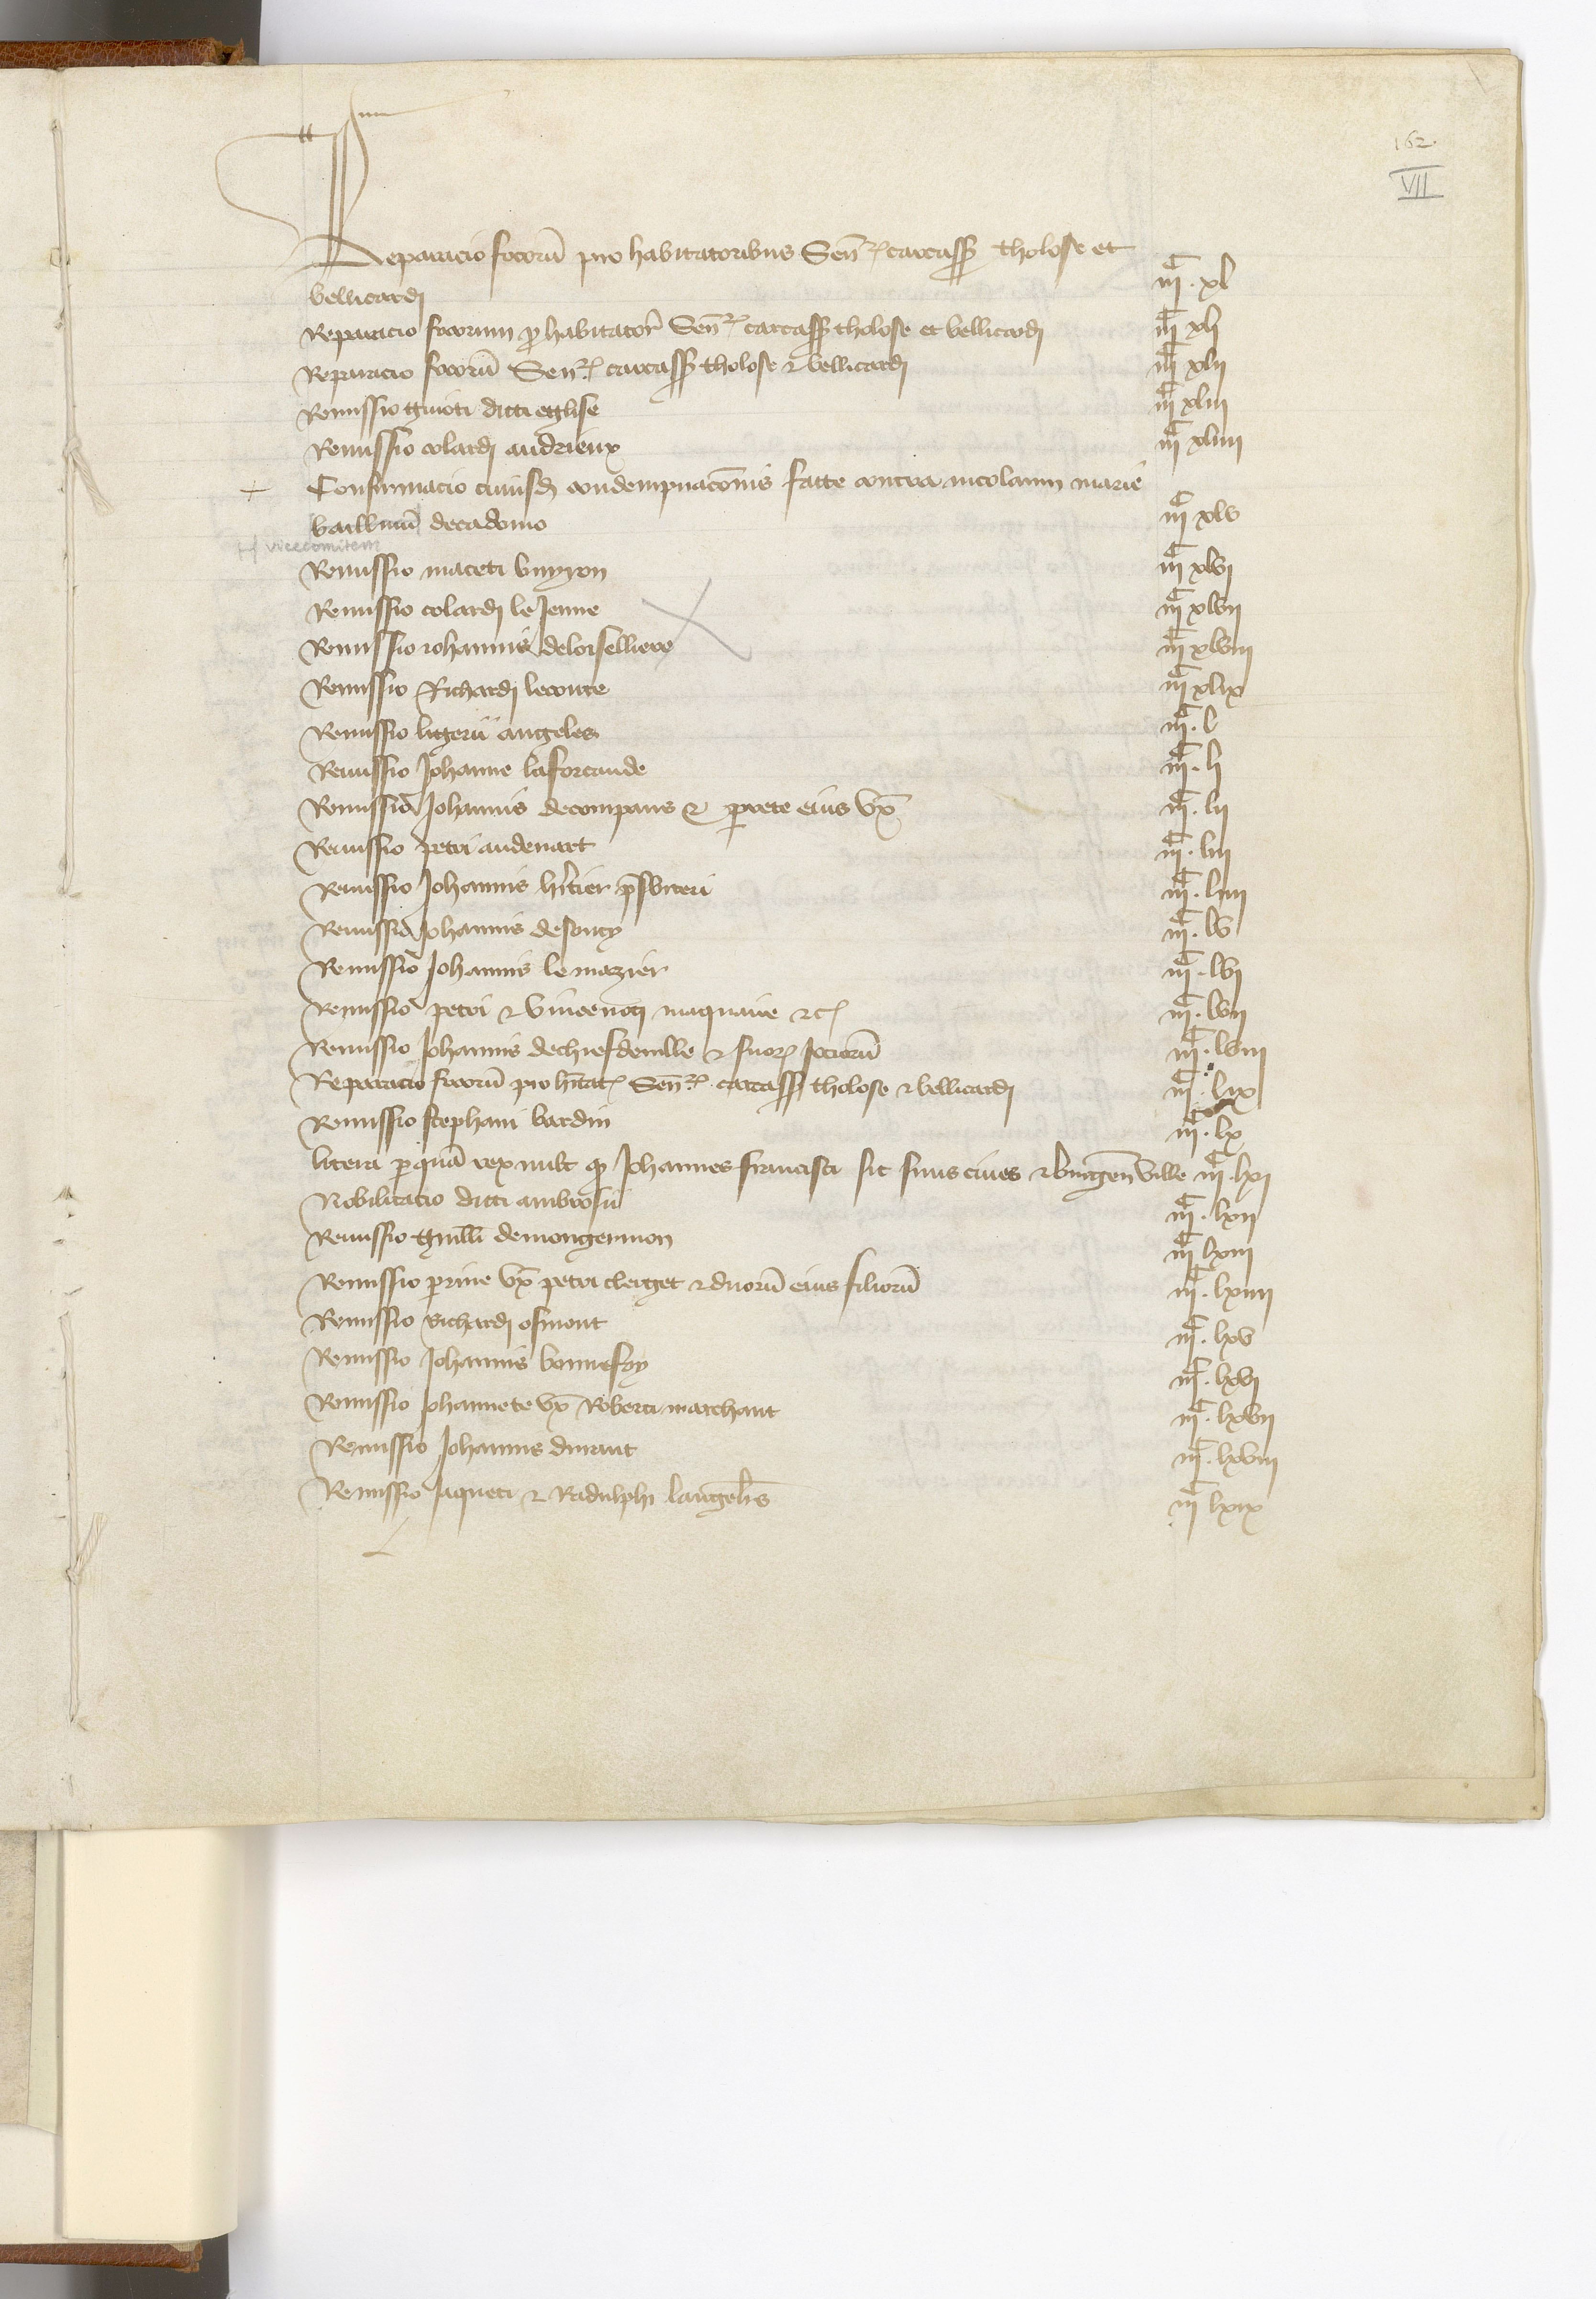 162
VII
Reparacio focorũ pro habitatoribus Senꝝ carcassꝭ tholose et iijᶜ . xl
bellicardj
Reparacio focorum ꝓ habitatorꝭ Senꝝ carcassꝭ tholose et bellicardj iijᶜ xlj
Reparacio focorũ Senꝝ carcassꝭ tholose ⁊ bellicardj iijᶜ xlij
Remissio guioti dicti eglise iijᶜ xliij
Remissio colardj andrieux iijᶜ xliiij
+ Confirmacio cuiusdꝭ condempnacõnis facte contra nicolaum marie
baillivũ de cadomo iijᶜ xlv
vicecomitem
Remissio maceti iijᶜ xlvj
Remissio colardj le Jeune iijᶜ xlvij
Remissio iohannis deloiselliere iijᶜ xlviij
Remissio Richardj leconte iijᶜ xlix
Remissio ligerii angeles iijᶜ . l
Remissio Johanne laforcaude iijᶜ . lj
Remissio Johannis decompans ⁊ ꝑrete eius vx̃ iijᶜ . lij
Remissio petri audenart iijᶜ . liij
Remissio Johannis hr̃tier p̃sbiteri iijᶜ . liiij
Remissio Johannis desoucy iijᶜ . lv
Remissio Johannis le mazier iijᶜ . lvj
Remissio petri ⁊ vincencij maquaire ⁊cꝭ iijᶜ . lvij
Remissio Johannis dechiefdeville ⁊ suoꝝ sociorũ iijᶜ . lviij
Reparacio focorũ pro hĩtatꝭ Senꝝ carcassꝭ tholose ⁊ bellicardj iijᶜ . lix
Remissio stephani bardin iijᶜ . lx
litera ꝑ quã rex vult qꝫ Johannes francisci sit suus cives ⁊ burgeñ ville iijᶜ . lxj
Nobilitatio dicti ambrosii iijᶜ . lxij
Remissio Guill̃i demongermon iijᶜ lxiij
Remissio ꝑrine vx̃ petri clerget ⁊ duorũ eius filiorũ iijᶜ . lxiiij
Remissio Richardj osmont iijᶜ . lxv
Remissio Johannis bonnefoy iijᶜ . lxvj
Remissio Johannete vx̃ Roberti marchant iijᶜ . lxvij
Remissio Johannis durant iijᶜ . lxviij
Remissio Jaqueti ⁊ Radulphi langl̃s iijᶜ lxix